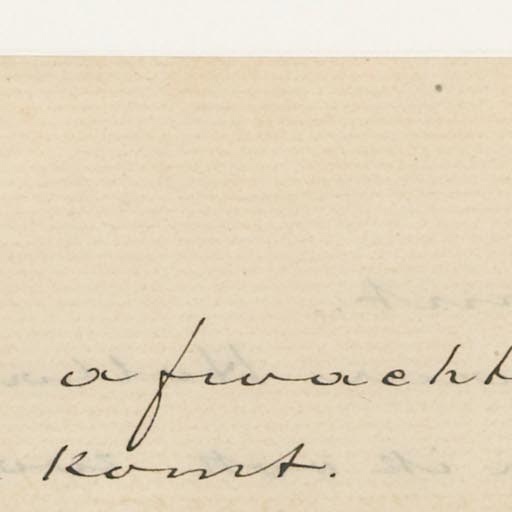 afwacht
komt.